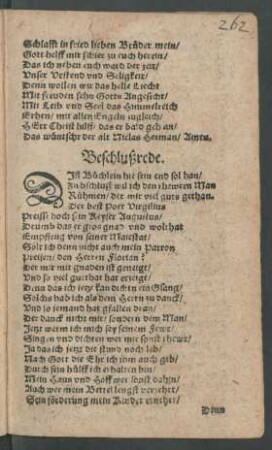 262
Schlafft in fried lieben Brüder mein/
Gott helff mir schier zu euch herein/
Das ich neben euch ward der zeit/
Vnser Vrstend vnd Seligkeit/
Denn wollen wir das helle Liecht
Mit freuden sehn Gotts Angesicht/
Mit Leib vnd Seel das Himmelreich
Erben/ mit allen Engeln zugleich/
HErr Christ hilff/ das er bald geh an/
Das wüntscht der alt Niclas Herman/ Amen.
Beschlußrede.
DIß Büchlein hie sein end sol han/
Zu beschluß wil ich den thewren Man
Rühmen/ der mir viel guts gethan.
Der best Poet Virgilius
Preist hoch sein Keyser Augustus/
Drumb das er gros gnad vnd wolthat
Empfieng von seiner Maiestat/
Solt ich denn nicht auch mein Patron
Preisen/ den Herren Florian?
Der mir mit gnaden ist geneigt/
Vnd so viel gutthat hat erzeigt/
Denn das ich jetzt kan dichtn ein Gsang/
Solchs hab ich als dem Herrn zu danck/
Vnd so jemand hat gfallen dran/
Der danck nicht mir/ sondern dem Man/
Jetzt werm ich mich bey seinem Fewr/
Singen vnd dichten wer mir sonst thewr/
Ja das ich jetzt die stund noch leb/
Nach Gott die Ehr ich jhm auch geb/
Durch sein hülff ich erhalten bin/
Mein Hauß vnd Hoff wer sonst dahin/
Auch wer mein Bettel lengst verzehrt/
Sein förderung mein Kinder ernehrt/
Denn